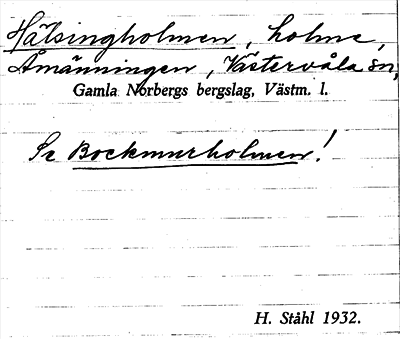 Hälsingholmen, holme,
Åmänningen, Västervåla sn,
Gamla Norbergs bergslag, Västm. l.
Se Bockmurholmen!
H. Ståhl 1932.